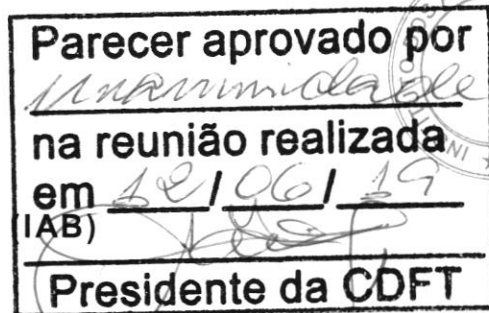 Parecer aprovado por
unanimidade
na reunião realizada
em 12/06/19
(IAB)
Presidente da CDFT